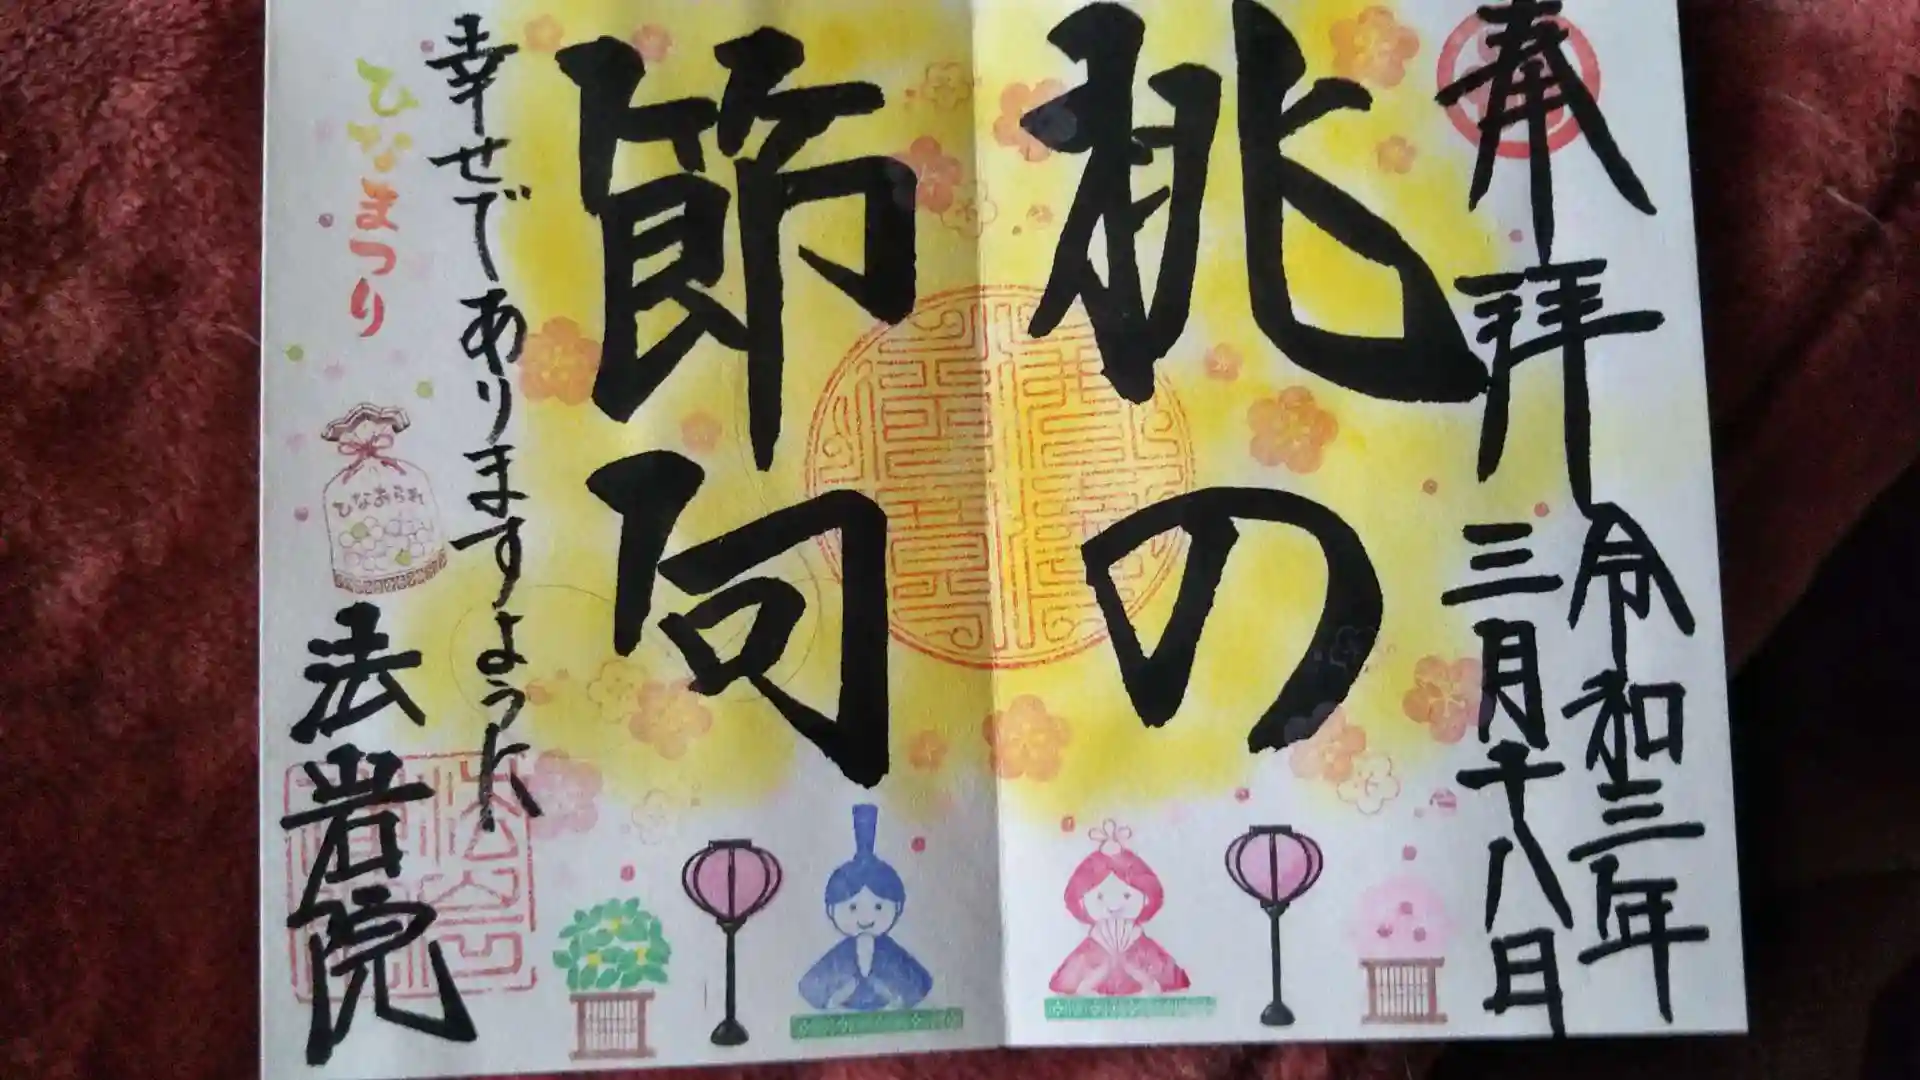 奉拝
令和三年
三月十八日
桃の
節句
幸せでありますように
ひなまつり
ひなあられ
法岩院